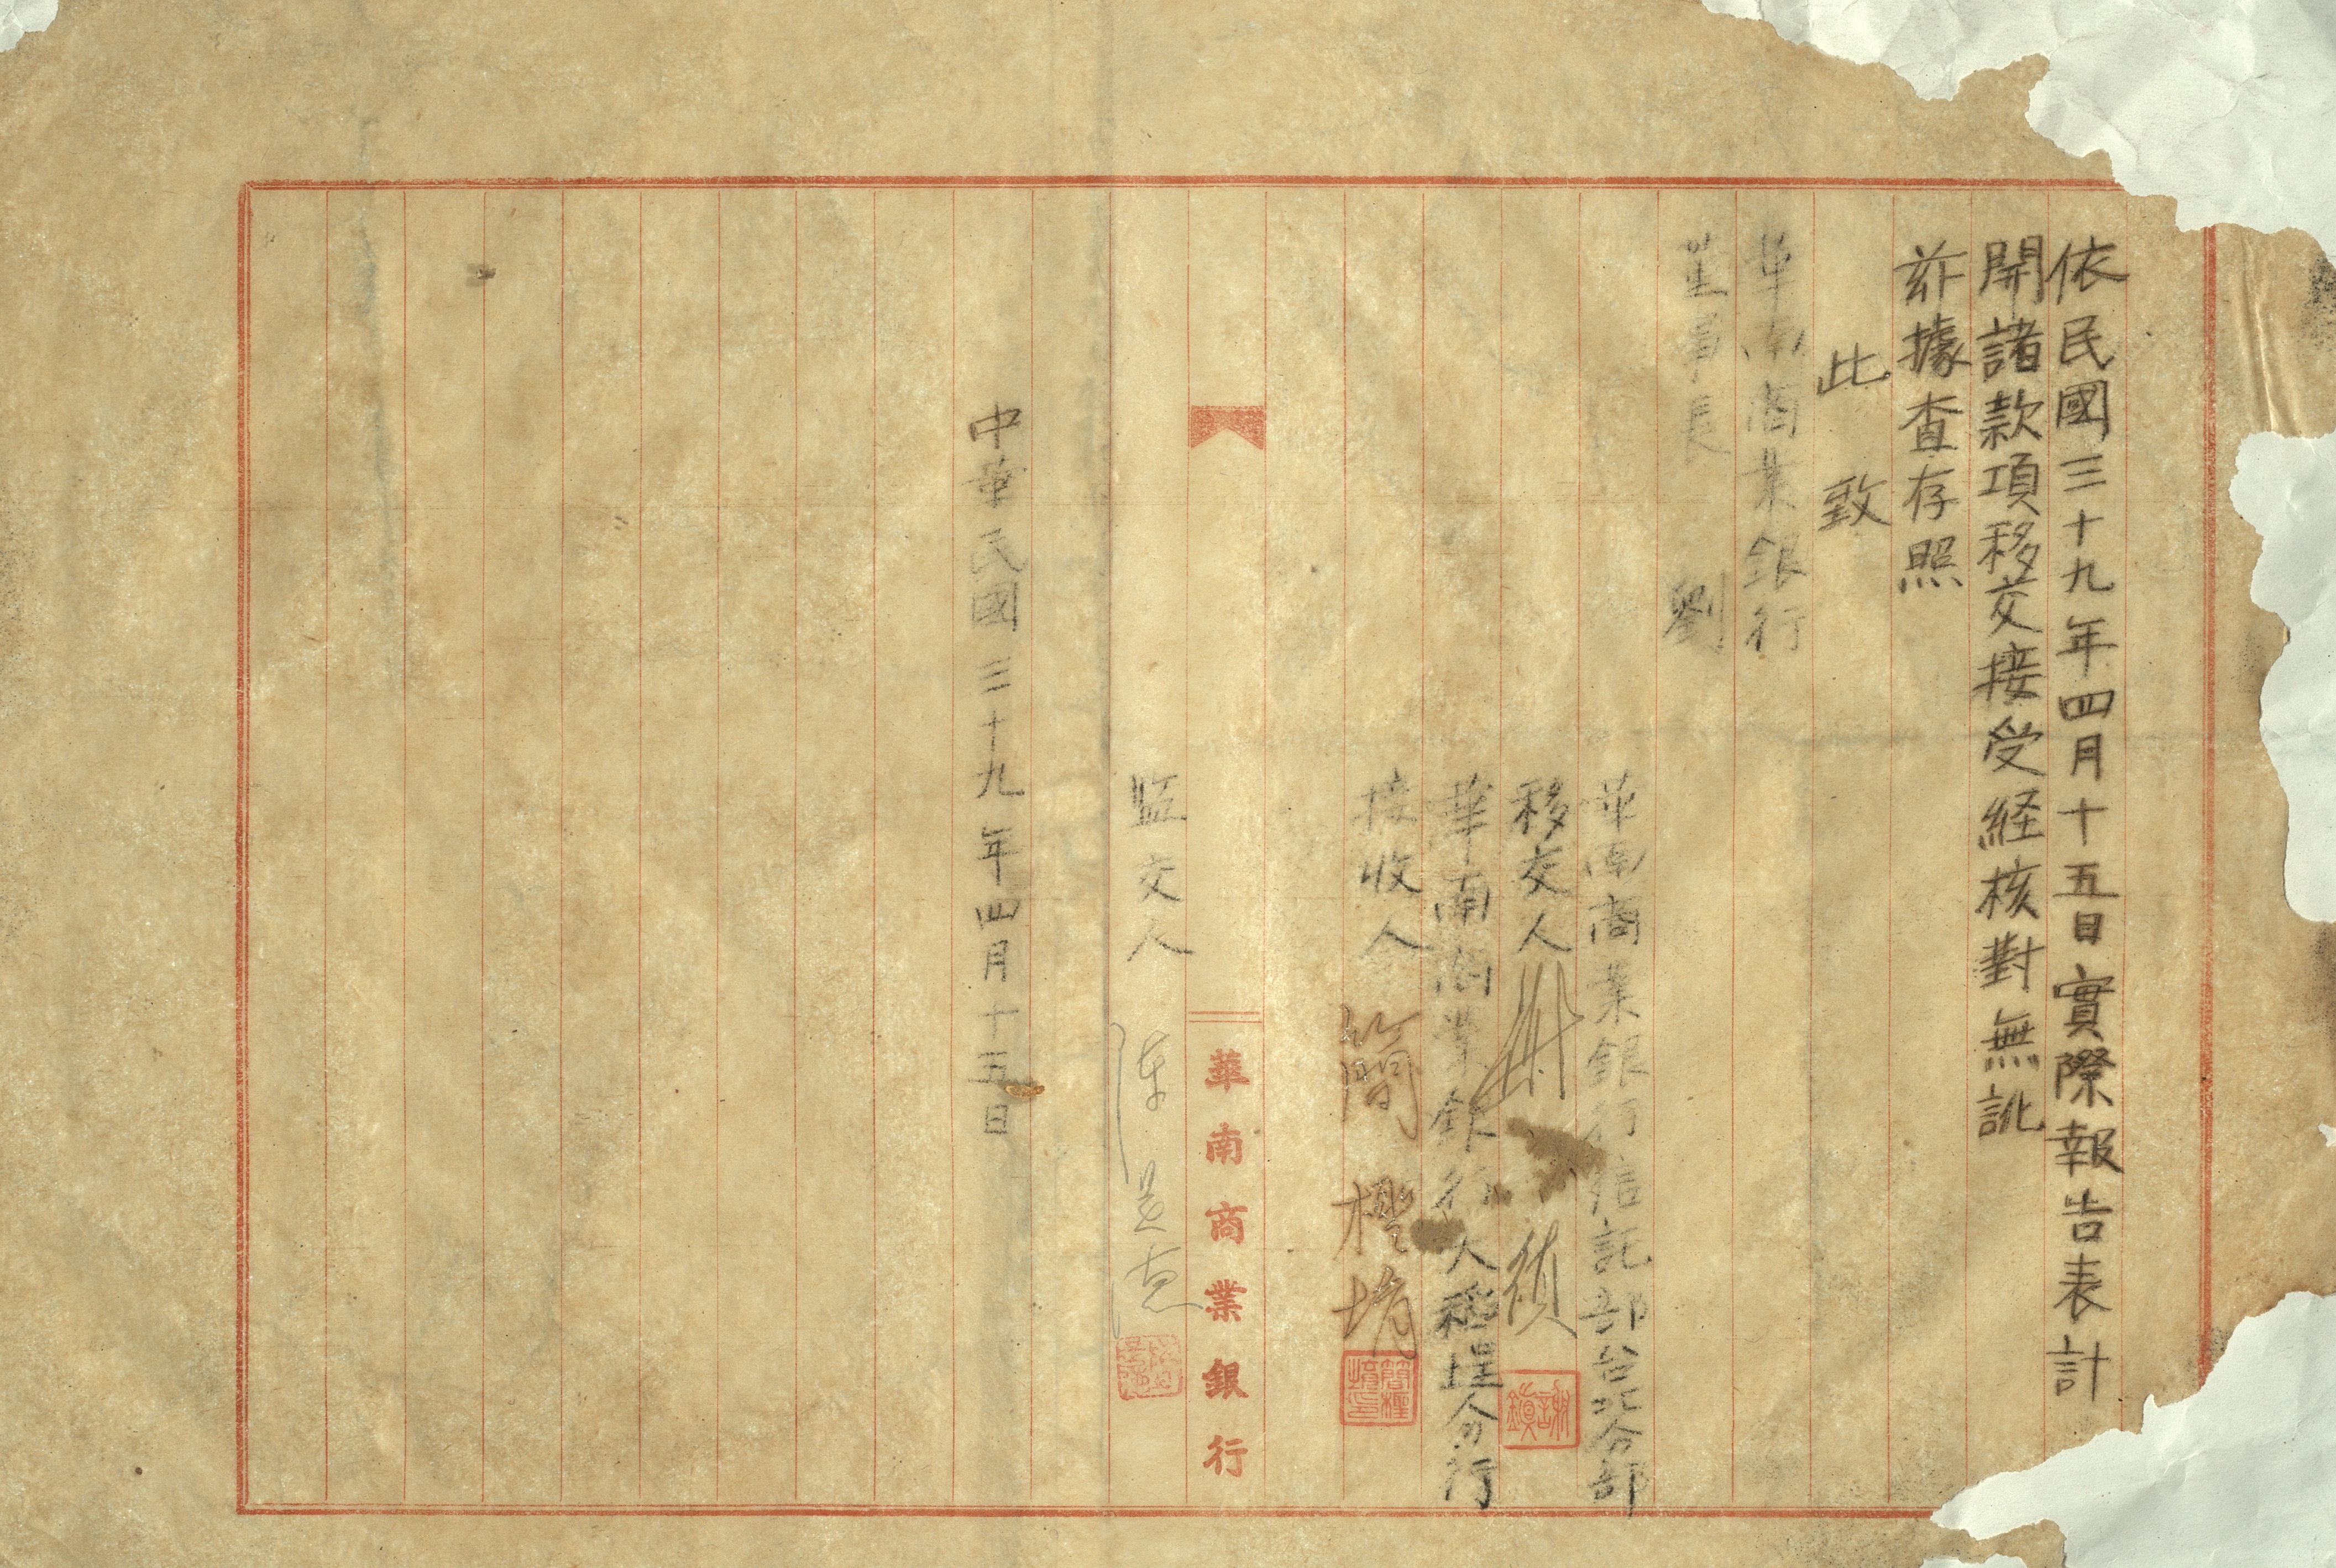 依民國三十九年四月十五日實際報告表計
開諸款項移交接受経核對無訛
茲據查存照
此致
華南商業銀行
董事長 劉
華南商業銀行信託部台北分部
移交人 謝 鎮
華南商業銀行大稻埕分行
接收人 簡檉堉
華南商業銀行
監交人 陳
中華民國三十九年四月十五日